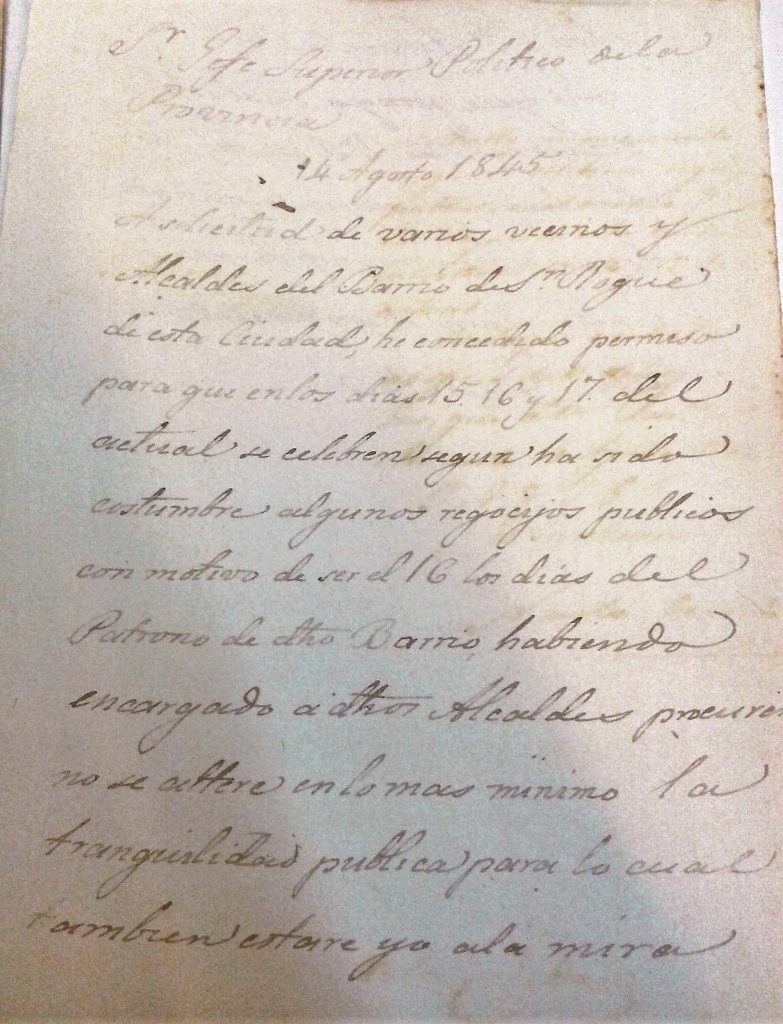 Sr. Gefe Superior Politico dela
Provincia
14 Agosto 1845
A solicitud de varios vecinos y
Alcaldes del Barrio de Sn. Roque
de esta Ciudad, he concedido permiso
para que enlos dias 15. 16 y 17. del
actual se celebren segun ha sido
costumbre algunos regocijos publicos
con motivo de ser el 16 los dias del
Patrono de dho Barrio, habiendo
encargado a dhos Alcaldes procuren
no se altere enlo mas minimo la
tranquilidad publica para lo cual
tambien estare yo ala mira